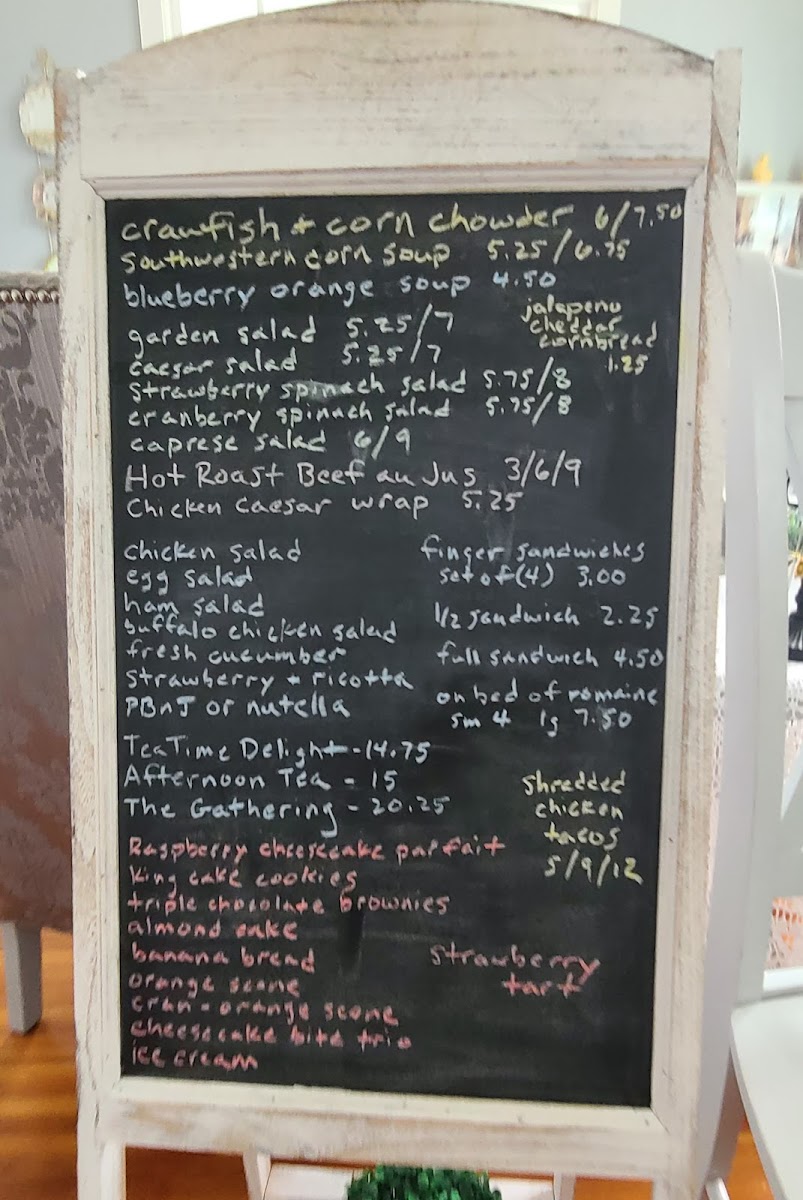 crawfish + corn chowder 6/7.50
southwestern corn soup 5.25/6.75
blueberry orange soup 4.50
jalapeno
cheddar
cornbread
1.25
garden salad 5.25/7
caesar salad 5.25/7
strawberry spinach salad 5.75/8
cranberry spinach salad 5.75/8
caprese salad 6/9
Hot Roast Beef au Jus 3/6/9
Chicken Caesar wrap 5.25
chicken salad
egg salad
ham salad
buffalo chicken salad
fresh cucumber
strawberry + ricotta
PBnJ or nutella
finger sandwiches
set of (4) 3.00
1/2 sandwich 2.25
full sandwich 4.50
on bed of romaine
sm 4 lg 7.50
TeaTime Delight - 14.75
Afternoon Tea - 15
The Gathering - 20.25
shredded
chicken
tacos
5/9/12
Raspberry cheesecake parfait
King cake cookies
triple chocolate brownies
almond cake
banana bread
orange scone
cran-orange scone
cheesecake bite trio
ice cream
strawberry
tart